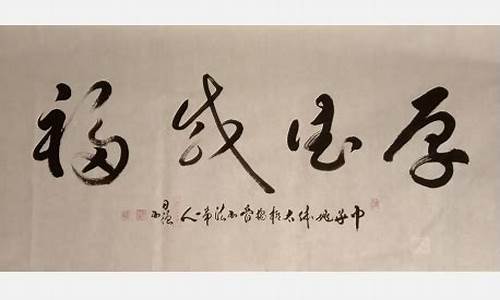 厚德载福
中华姚体太极书法第一人
书